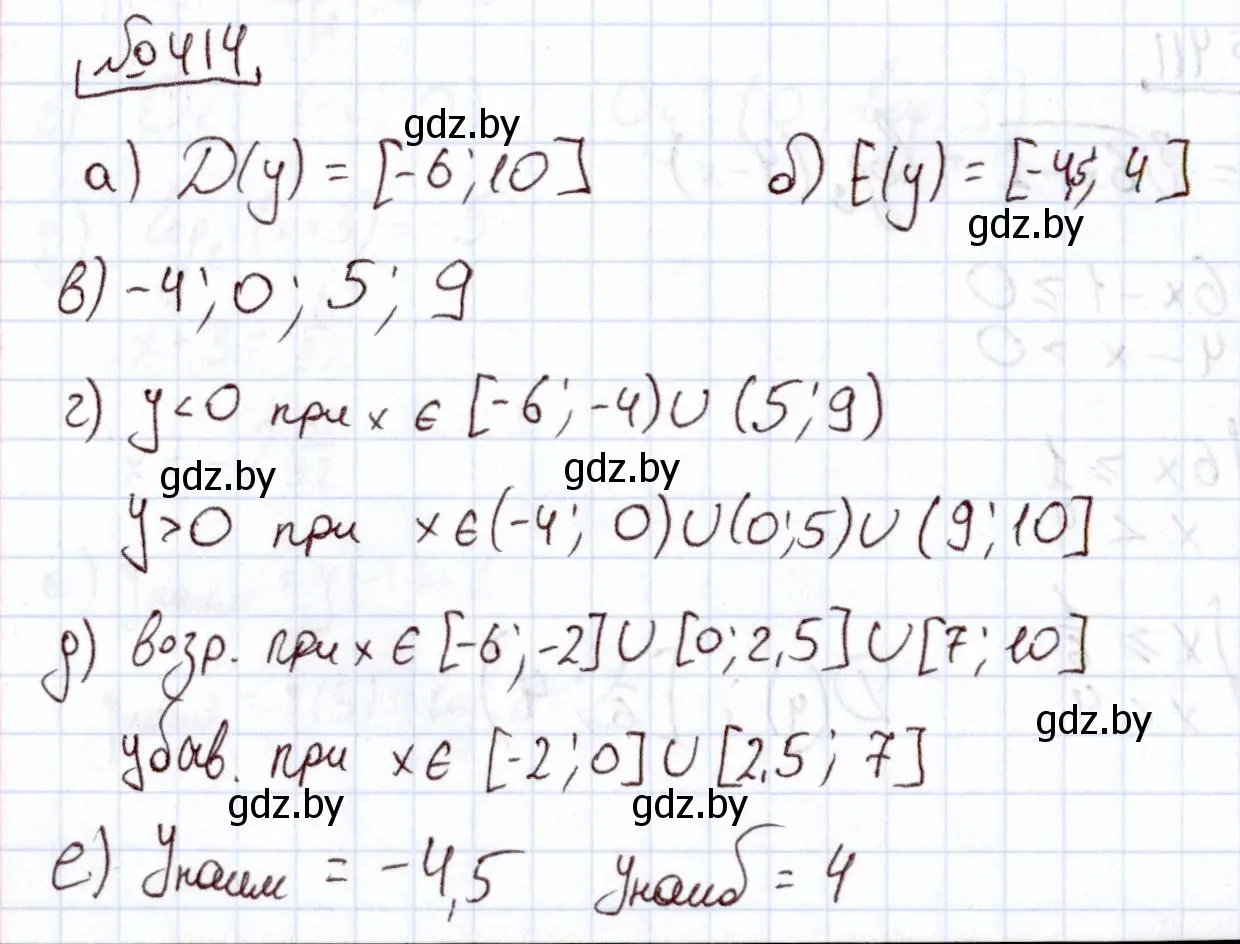 № 414
gdz.by
а) D(y) = [-6; 10] б) E(y) = [-4,5; 4]
gdz.by
в) -4; 0; 5; 9
г) y < 0 при x ∈ [-6; -4) ∪ (5; 9)
gdz.by gdz.by
y > 0 при x ∈ (-4; 0) ∪ (0; 5) ∪ (9; 10]
д) возр. при x ∈ [-6; -2] ∪ [0; 2,5] ∪ [7; 10]
gdz.by
убав. при x ∈ [-2; 0] ∪ [2,5; 7]
gdz.by gdz.by
е) yнаим = -4,5 yнаиб = 4